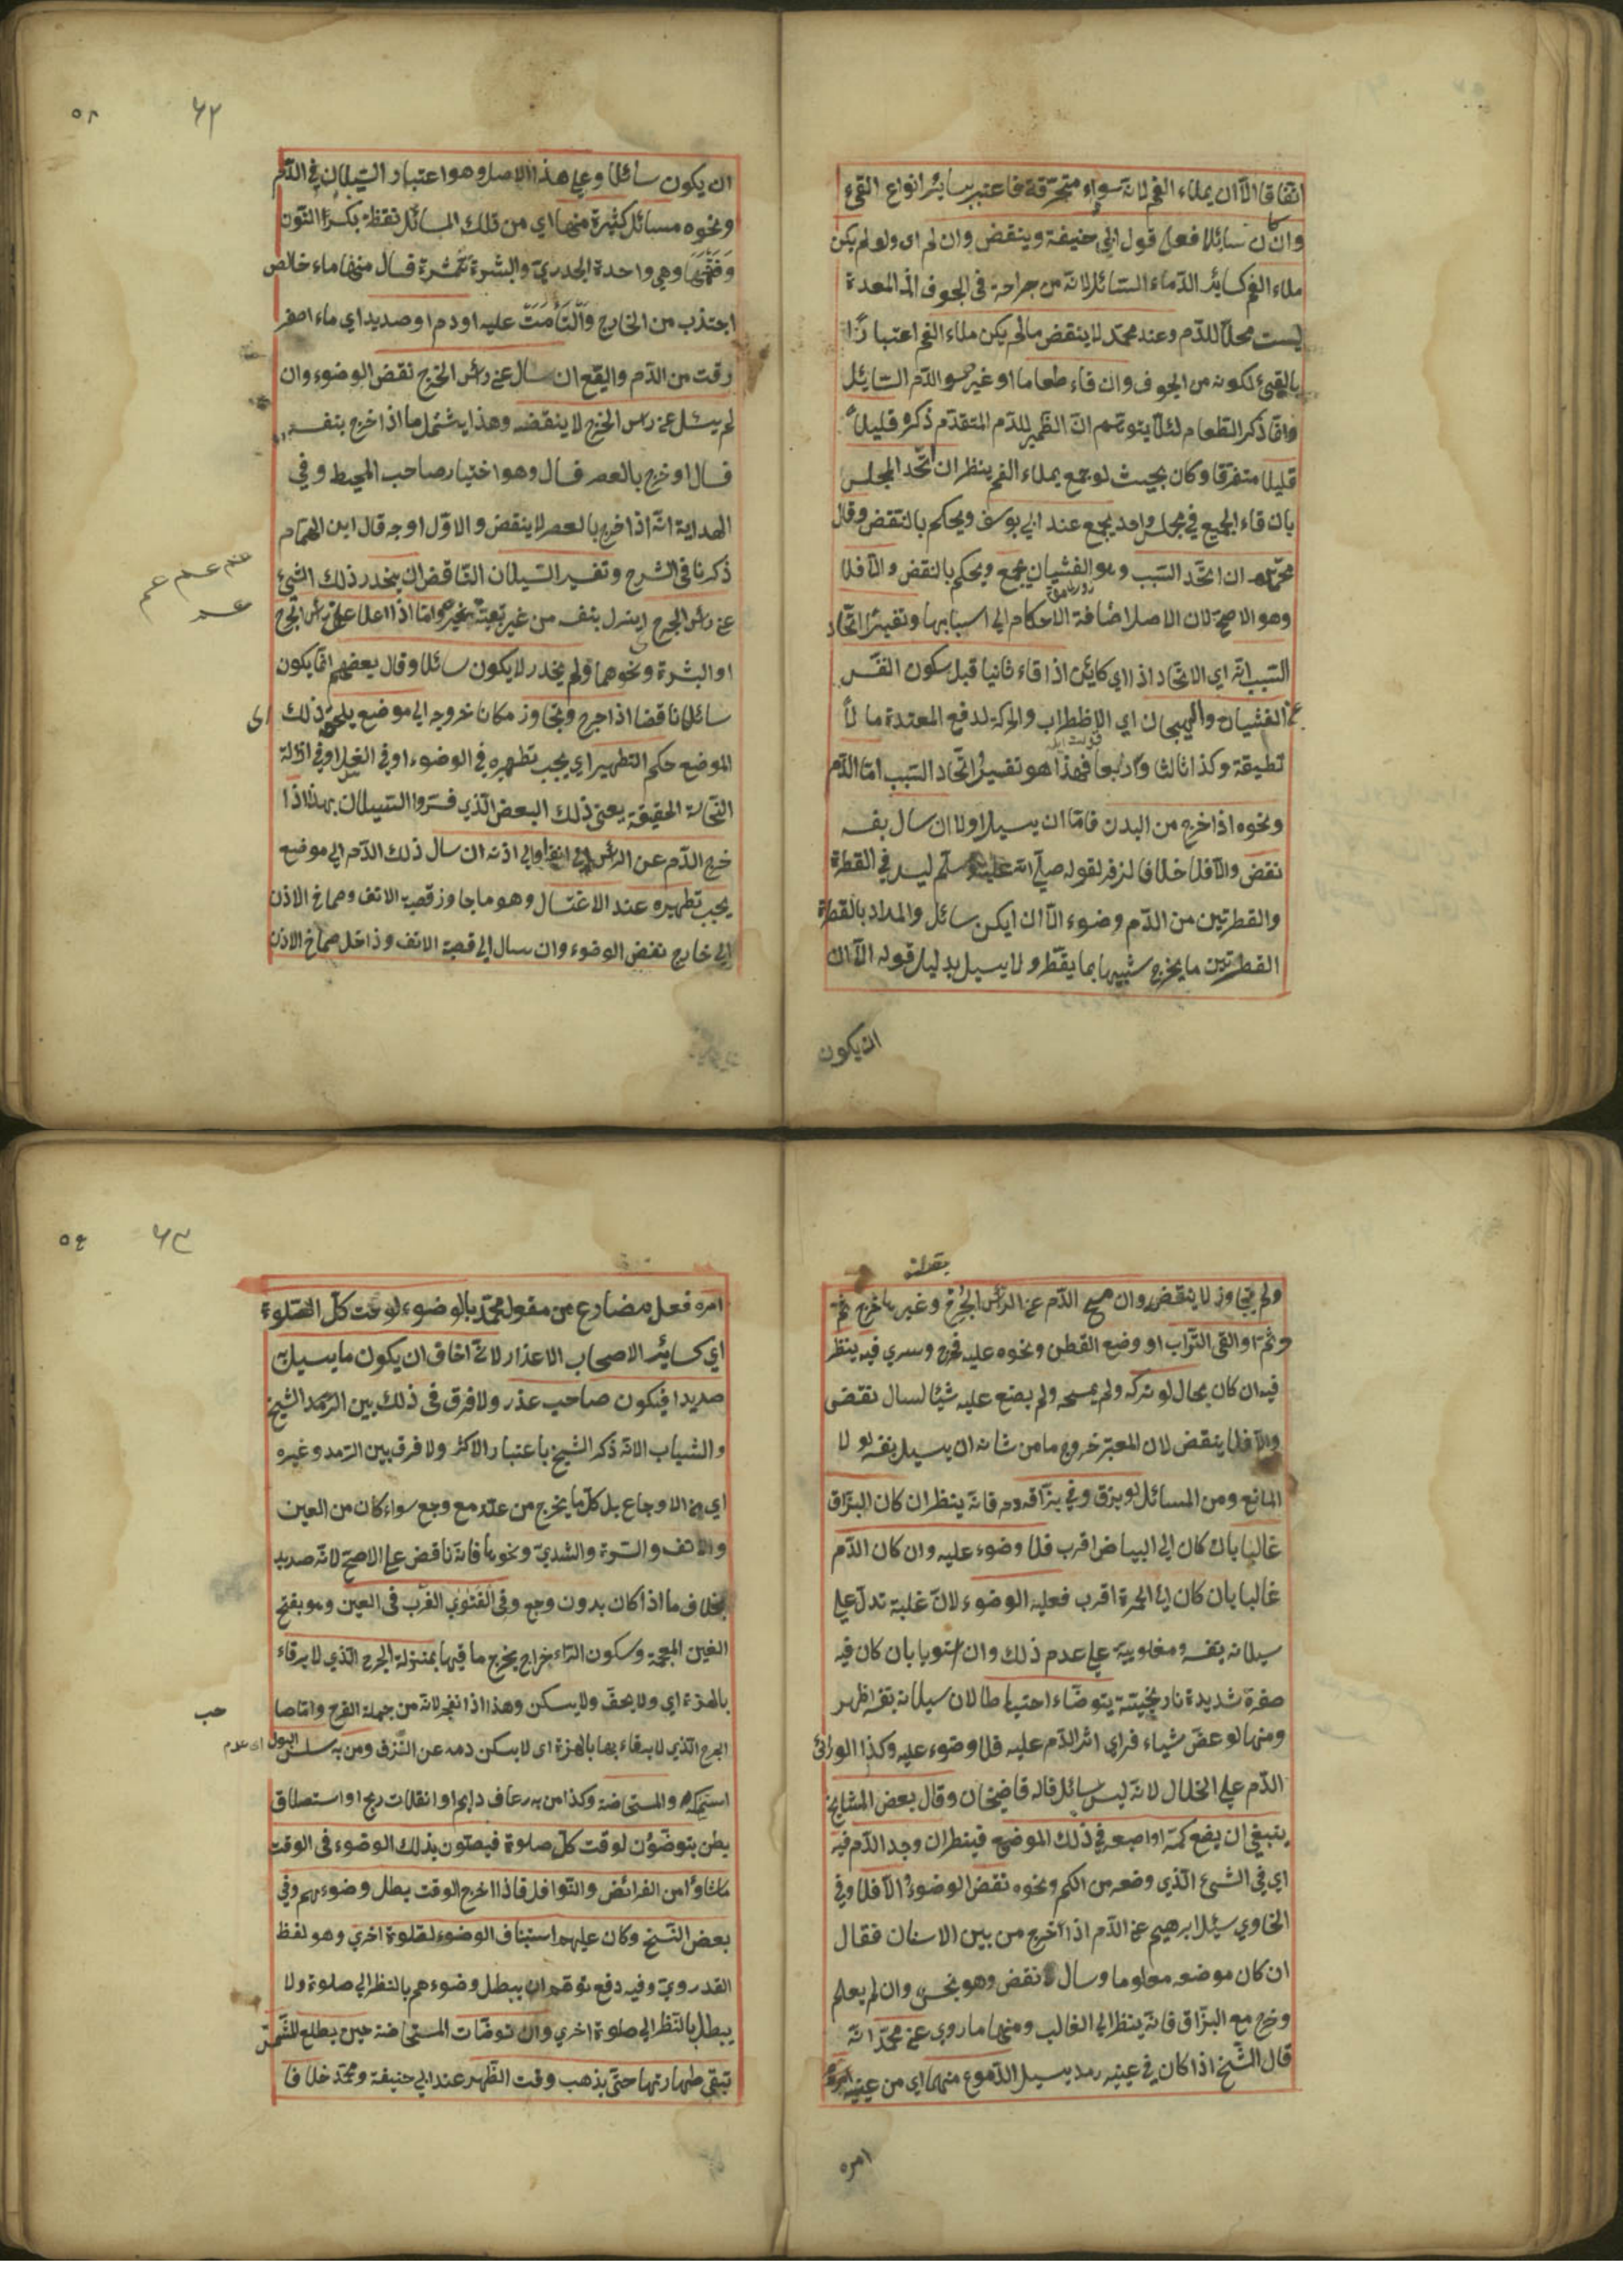 اتفاقا الا ان يملاء الفم لانه سوداء متحرقة فاعتبر بسائر انواع القئ
وان كان سائلا فعلى قول ابي حنيفة وينقض وان لم اى ولو لم يكن
ملاء الفم كسائر الدماء السائلة لانه من جراحة فى الجوف اذ المعدة
ليست محلا للدم وعند محمد لا ينقض مالم يكن ملاء الفم اعتبارا
بالقيئ لكونه من الجوف وان قاء طعاما او غيره سو الدم السائل
وانما ذكر الطعام لئلا يتوهم ان الضمير للدم المتقدم ذكره قليلا
قليلا متفرقا وكان بحيث لو جمع يملاء الفم ينظر ان اتحد المجلس
بان قاء الجميع في مجلس واحد يجمع عند ابي يوسف ويحكم بالنقض وقال
محمد ان اتحد السبب وهو الغثيان يجمع ويحكم بالنقض والا فلا
وهو الاصح لان الاصل اضافة الاحكام الى اسبابها وتفسير اتحاد
السبب انه اي الاتحاد اذا اي كائن اذا قاء ثانيا قبل سكون النفس
عن الغثيان والهيجان اي الاضطراب والحركة لدفع المعدة ما لا
تطيقه وكذا ثالثا ورابعا فهذا هو تفسير اتحاد السبب اما الدم
ونحوه اذا خرج من البدن فاما ان يسيل اولا ان سال بنفسه
نقض والا فلا خلافا لزفر لقوله صلى الله عليه وسلم ليس في القطرة
والقطرتين من الدم وضوء الا ان ايكن سائل والمراد بالقطرة
القطرتين ما يخرج شبيها بما يقطر ولا يسيل بدليل قوله الا ان
ان يكون
٦٢
٥٨
ان يكون سائلا وعلى هذا الاصل وهو اعتبار السيلان في الدم
ونحوه مسائل كثيرة منها اي من تلك المسائل نفطة بكسر النون
وفتحها وهي واحدة الجدري والبشرة قشرة فسال منها ماء خالص
اجتذب من الخارج والتأمت عليه او دم او صديد اي ماء اصفر
رقت من الدم والقيح ان سال عن رأس الخرج نقض الوضوء وان
لم يسل عن رأس الخرج لا ينقضه وهذا يشتمل ما اذا خرج بنفسه
فسال او خرج بالعصر فسال وهو اختيار صاحب المحيط وفي
الهداية انه اذا خرج بالعصر لا ينقض والاول اوجه قال ابن الهمام
ذكرنا فى الشرح وتفسير السيلان الناقض ان ينحدر ذلك الشئ
عن رأس الجرح اينزل بنفسه من غير تبعيته بغيره واما اذا علا على رأس الجرح
او البشرة ونحوهما ولم ينحدر لا يكون سائلا وقال بعضهم انما يكون
سائلا ناقضا اذا خرج وتجاوز مكان خروجه الى موضع يلحق ذلك اى
الموضع حكم التطهير اي يجب تطهيره في الوضوء او في الغسل او في ازالة
النجاسة الحقيقة يعنى ذلك البعض الذي فسروا السيلان بهذا اذا
خرج الدم عن الرأس الى انفه او الى اذنه ان سال ذلك الدم الى موضع
يجب تطهيره عند الاغتسال وهو ما جاوز قصبة الانف وصماخ الاذن
الى خارج نقض الوضوء وان سال الى قصبة الانف وداخل صماخ الاذن
ولم يتجاوز لا ينقض وان مسح الدم عن الرأس الجرح وغيرها خرج ثم
وثم او القى التراب او وضع القطن ونحوه عليه فخرج وسرى فيه ينظر
فيه ان كان بحال لو تركه ولم يمسحه ولم يضع عليه شيئا لسال نقض
والا فلا ينقض لان المعتبر خروج ما من شانه ان يسيل بنفسه لو لا
المانع ومن المسائل لو بزق وفي بزاقه دم فانه ينظر ان كان البزاق
غالبا بان كان الى البياض اقرب فلا وضوء عليه وان كان الدم
غالبا بان كان الى الحمرة اقرب فعليه الوضوء لان غلبة تدل على
سيلانه بنفسه ومغلوبيته على عدم ذلك وان استويا بان كان فيه
صفرة شديدة نارنجيتة يتوضاء احتياطا لان سيلانه بنفسه اظهر
ومنها لو عض شياء فراى اثر الدم عليه فلا وضوء عليه وكذا لو رائ
الدم على الخلال لانه ليس بسائل قاله قاضيخان وقال بعض المشايخ
ينبغي ان يضع كمه او اصبعه في ذلك الموضع فينظر ان وجد الدم فيه
اي في الشئ الذي وضعه من الكم ونحوه نقض الوضوء والا فلا وفي
الحاوي سئل ابرهيم عن الدم اذا خرج من بين الاسنان فقال
ان كان موضعه معلوما وسال نقض وهو نجس وان لم يعلم
وخرج مع البزاق فانه ينظر الى الغالب ومنها ما روي عن محمد انه
قال الشيخ اذا كان في عينيه رمد يسيل الدموع منهما اي من عينيه امره
امره
٦٣
٥٩
امره فعل مضارع من مفعل محمد بالوضوء لوقت كل الصلوة
اي كسائر الاصحاب الاعذار لانى اخاف ان يكون ما يسيل
صديدا فيكون صاحب عذر ولا فرق فى ذلك بين الرمد الشيخ
والشباب الا انه ذكر الشيخ باعتبار الاكثر ولا فرق بين الرمد وغيره
اي من الاوجاع بل كل ما يخرج من علته مع وجع سواء كان من العين
والانف والسرة والثدي ونحوها فانه ناقض على الاصح لانه صديد
بخلاف ما اذا كان بدون وجع وفى الفتوي الغرب فى العين وهو بفتح
الغين المعجمة وسكون الراء خراج يخرج ما فيها بمنزلة الجرح الذي لا يرقاء
بالهمزة اي ولا يجف ولا يسكن وهذا اذا انفجر لانه من جملة القرح واما صا حب
الجرح الذي لا يرقاء بها بالهمزة اى لا يسكن دمه عن النزف ومن به سلس البول اى عدم
استمساكه والمستحاضة وكذا من به رعاف دايم او انفلات ريح او استطلاق
بطن يتوضؤن لوقت كل صلوة فيصلون بذلك الوضوء فى الوقت
ماشاؤا من الفرائض والنوافل فاذا اخرج الوقت بطل وضوءهم وفي
بعض النسخ وكان عليهم استيناف الوضوء لصلوة اخرى وهو لفظ
القدروي وفيه دفع توهم ان يبطل وضوءهم بالنظر الى صلوة ولا
يبطل بالنظر الى صلوة اخري وان توضات المستحاضة حين يطلع الشمس
تبقى طهارتها حتى يذهب وقت الظهر عند ابي حنيفة ومحمد خلافا